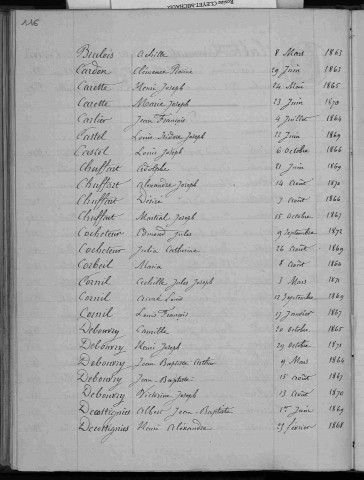 116
Achille 8 Mars 1863
Cardon Clémence Rosine 29 Juin 1863
Carette Henri Joseph 24 Mai 1865
Carette Maria Joseph 23 Juin 1870
Carlier Jean François 4 Juillet 1864
Castel Louis Isidore Joseph 22 Juin 1869
Castel Louis Joseph 6 Octobre 1866
Chuffart Adolphe 21 Juin 1869
Chuffart Alexandre Joseph 14 Août 1870
Chuffart Désiré 7 Août 1866
Chuffart Martial Joseph 15 Octobre 1867
Cocheteux Edmond Jules 9 Septembre 1872
Cocheteux Julie Catherine 26 Août 1869
Corbeil Maria 8 Août 1864
Cornil Achille Jules Joseph 3 Mars 1871
Cornil Aimé Louis 12 Septembre 1869
Cornil Louis François 17 Janvier 1867
Debouvry Camille 20 Octobre 1865
Debouvry Henri Joseph 29 Octobre 1871
Debouvry Jean Baptiste Arthur 9 Mars 1864
Debouvry Jean Baptiste 15 Août 1867
Debouvry Victorian Joseph 13 Août 1870
Decottignies Albert Jean Baptiste 1er Juin 1869
Decottignies Henri Alexandre 27 février 1868